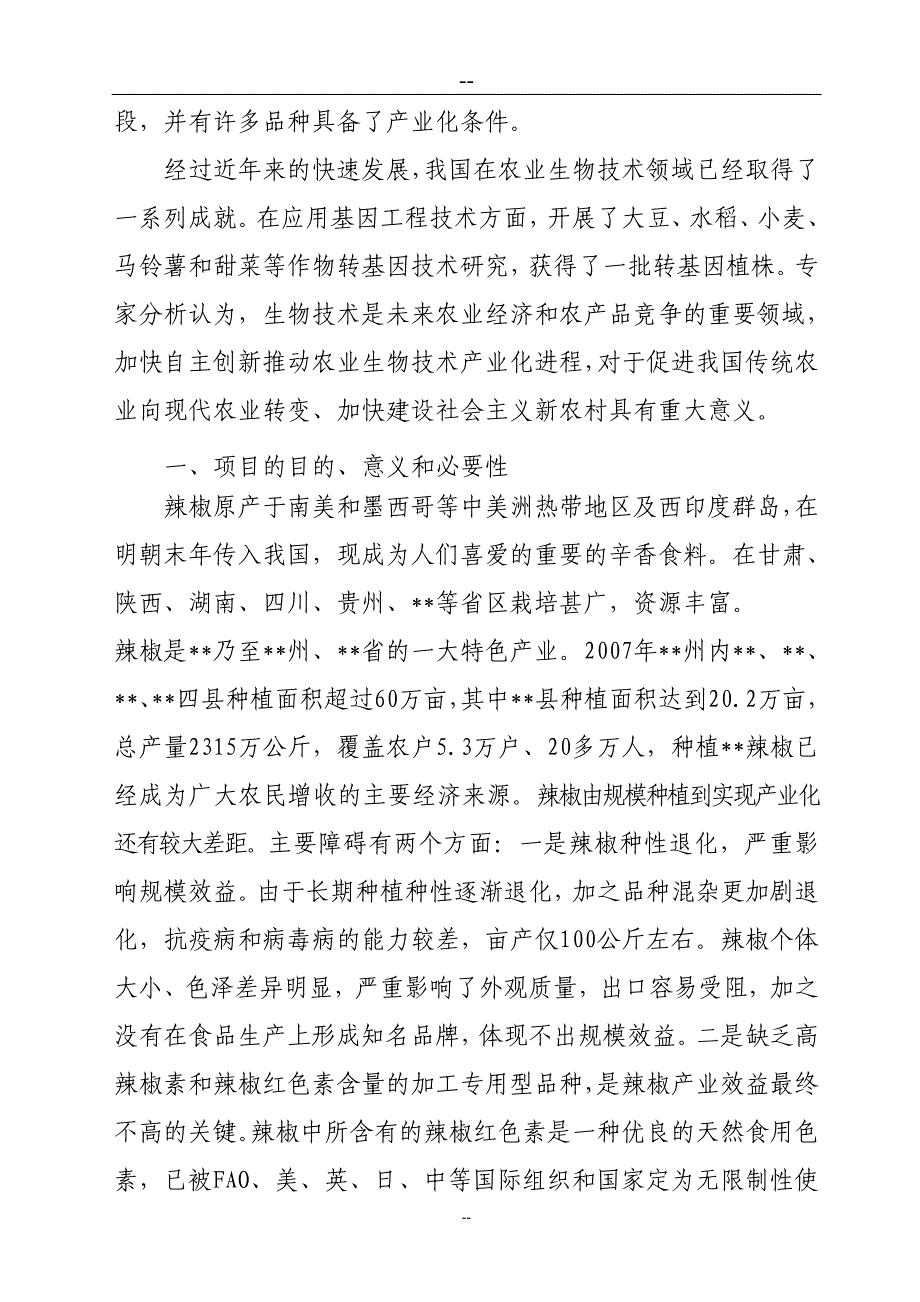 --
段，并有许多品种具备了产业化条件。
经过近年来的快速发展，我国在农业生物技术领域已经取得了
一系列成就。在应用基因工程技术方面，开展了大豆、水稻、小麦、
马铃薯和甜菜等作物转基因技术研究，获得了一批转基因植株。专
家分析认为，生物技术是未来农业经济和农产品竞争的重要领域，
加快自主创新推动农业生物技术产业化进程，对于促进我国传统农
业向现代农业转变、加快建设社会主义新农村具有重大意义。
一、项目的目的、意义和必要性
辣椒原产于南美和墨西哥等中美洲热带地区及西印度群岛，在
明朝末年传入我国，现成为人们喜爱的重要的辛香食料。在甘肃、
陕西、湖南、四川、贵州、**等省区栽培甚广，资源丰富。
辣椒是**乃至**州、**省的一大特色产业。2007年**州内**、**、
**、**四县种植面积超过60万亩，其中**县种植面积达到20.2万亩，
总产量2315万公斤，覆盖农户5.3万户、20多万人，种植**辣椒已
经成为广大农民增收的主要经济来源。辣椒由规模种植到实现产业化
还有较大差距。主要障碍有两个方面：一是辣椒种性退化，严重影
响规模效益。由于长期种植种性逐渐退化，加之品种混杂更加剧退
化，抗疫病和病毒病的能力较差，亩产仅100公斤左右。辣椒个体
大小、色泽差异明显，严重影响了外观质量，出口容易受阻，加之
没有在食品生产上形成知名品牌，体现不出规模效益。二是缺乏高
辣椒素和辣椒红色素含量的加工专用型品种，是辣椒产业效益最终
不高的关键。辣椒中所含有的辣椒红色素是一种优良的天然食用色
素，已被FAO、美、英、日、中等国际组织和国家定为无限制性使
--